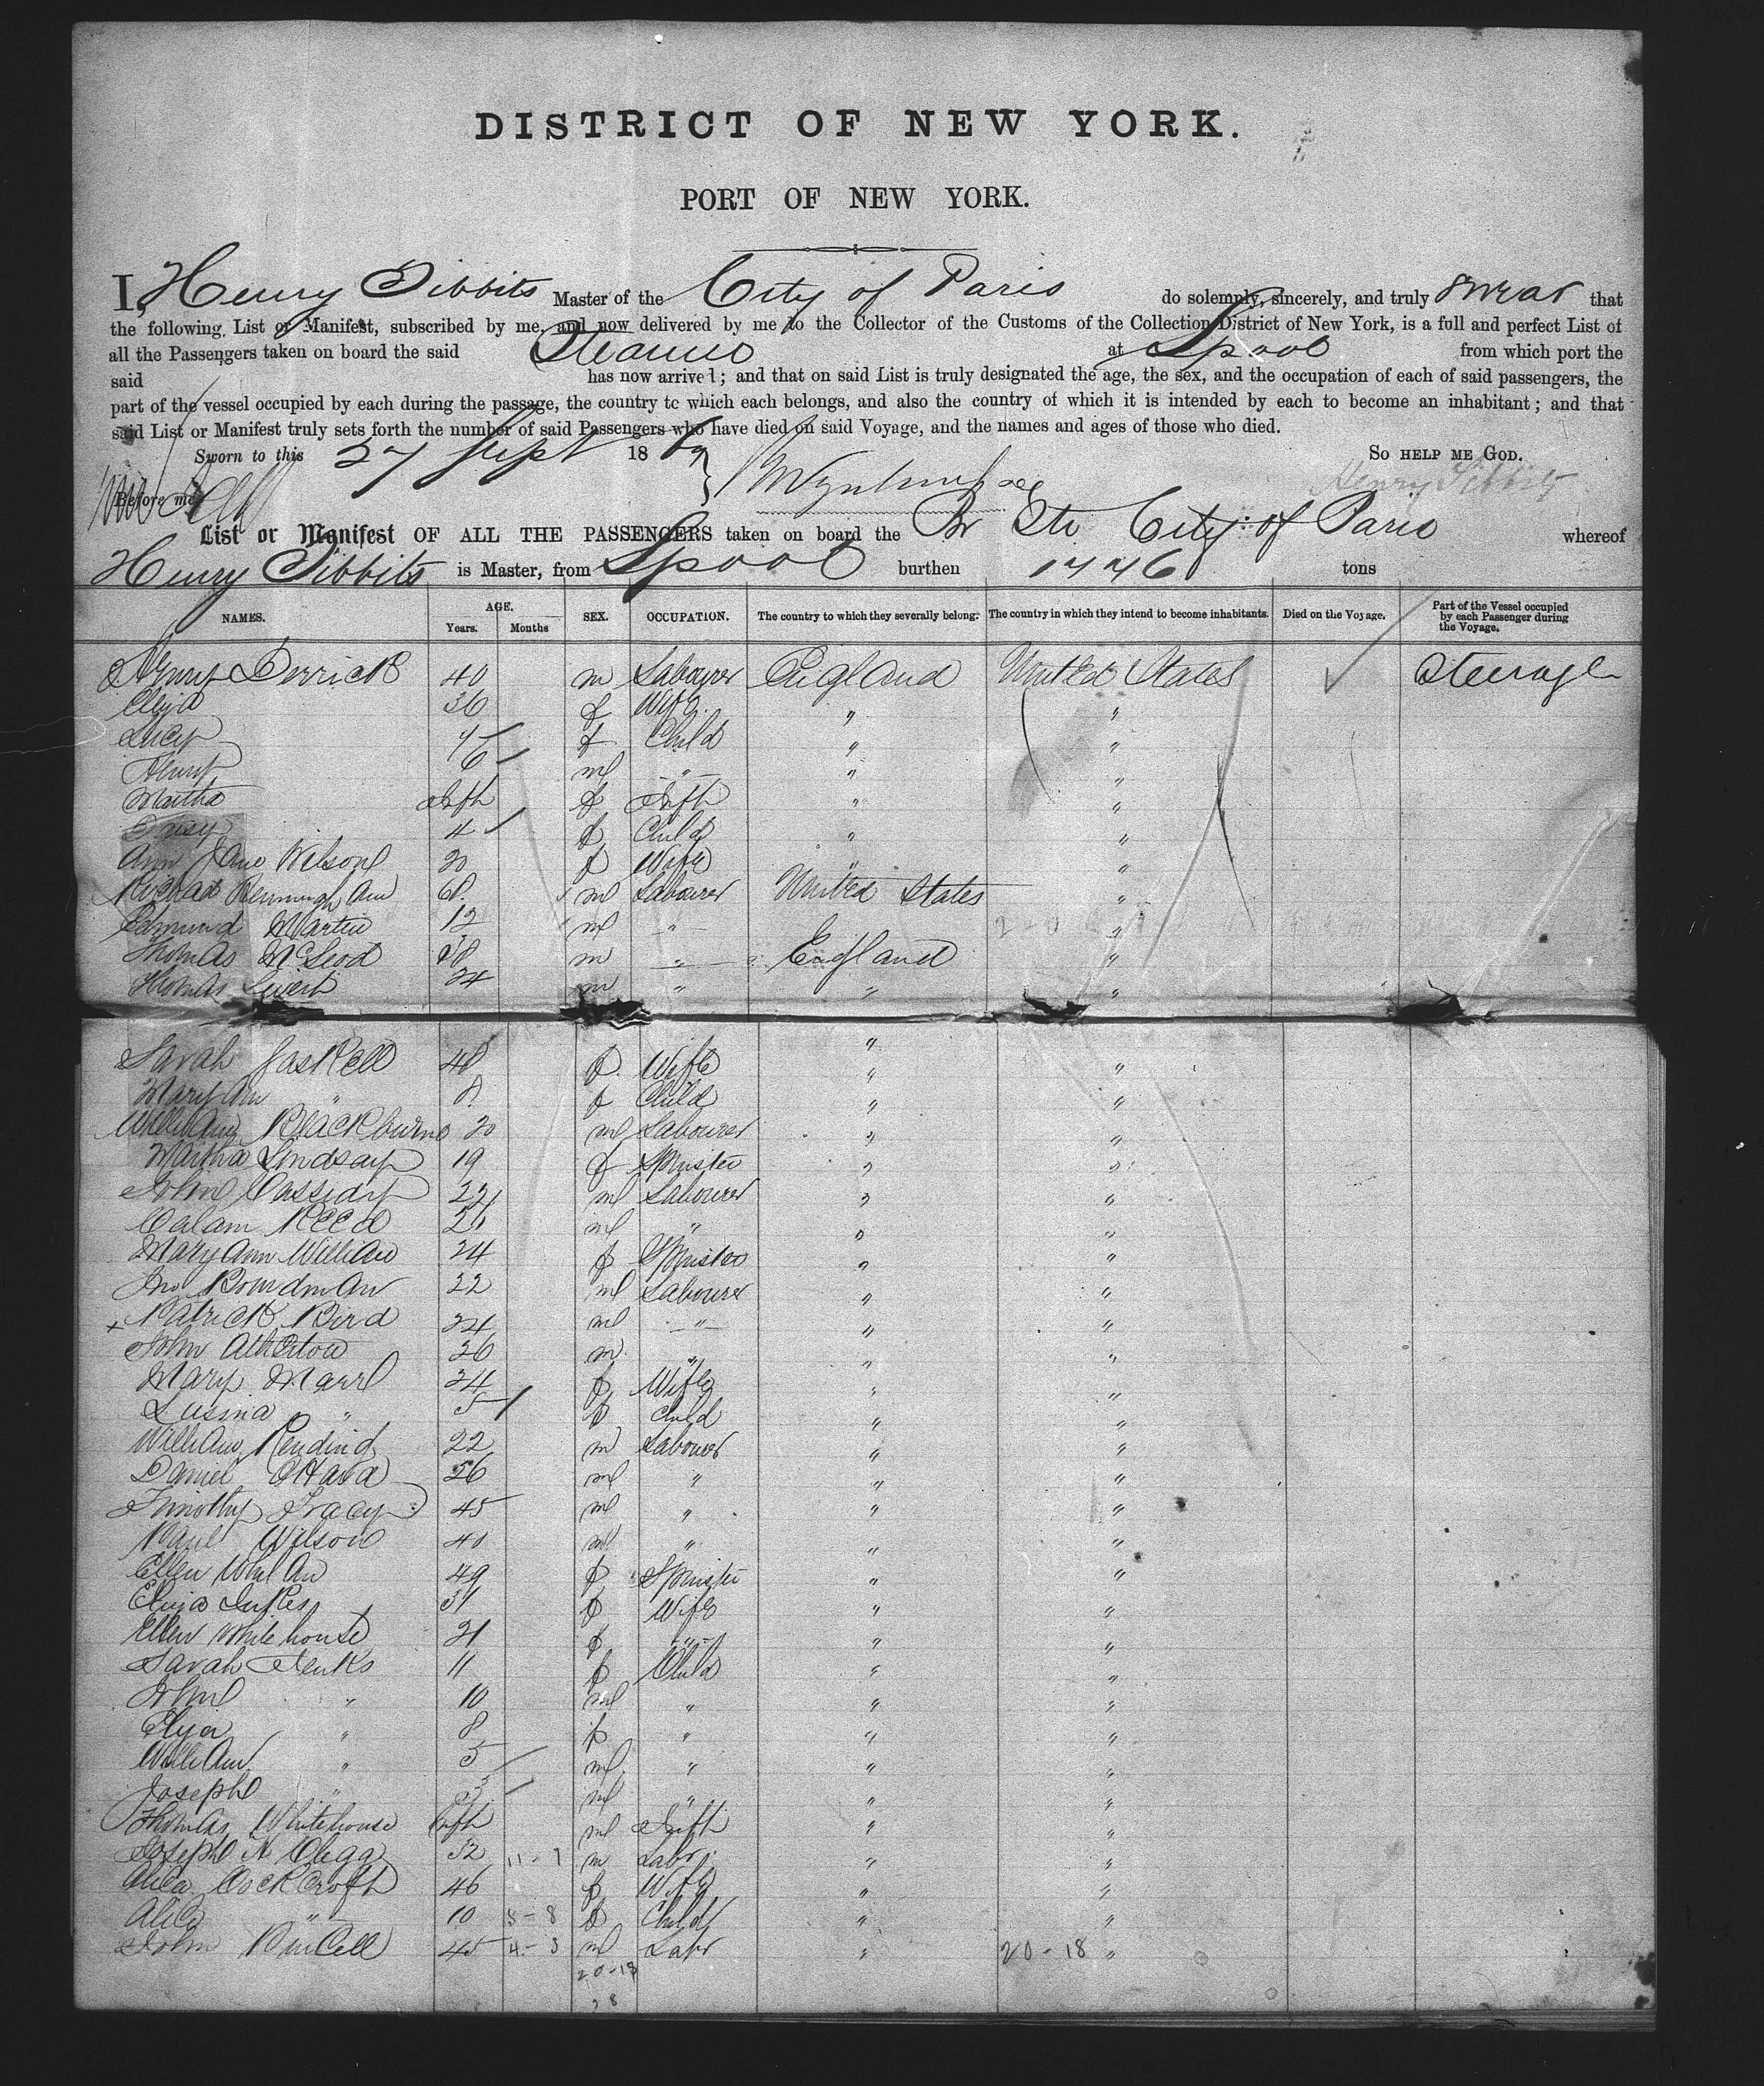 DISTRICT OF NEW YORK.
PORT OF NEW YORK.
I, Henry Tibbits Master of the City of Paris do solemnly, sincerely, and truly swear that
the following List or Manifest, subscribed by me, and now delivered by me to the Collector of the Customs of the Collection District of New York, is a full and perfect List of
all the Passengers taken on board the said Steamer at Lpool from which port the
said has now arrived; and that on said List is truly designated the age, the sex, and the occupation of each of said passengers, the
part of the vessel occupied by each during the passage, the country to which each belongs, and also the country of which it is intended by each to become an inhabitant; and that
said List or Manifest truly sets forth the number of said Passengers who have died on said Voyage, and the names and ages of those who died.
Sworn to this 27 Sept 1869 So HELP ME GOD.
Before me Henry Tibbits
List or Manifest OF ALL THE PASSENGERS taken on board the Br Str City of Paris whereof
Henry Tibbits is Master, from Lpool burthen 1776 tons
NAMES. AGE. Years. Months SEX. OCCUPATION. The country to which they severally belong. The country in which they intend to become inhabitants. Died on the Voyage. Part of the Vessel occupied by each Passenger during the Voyage.
Henry Derrick 40 m Labourer England United States Steerage
Eliza 36 f Wife " "
Lucy 7 f Child " "
Henry 6 m " " "
Martha Infh f Infh " "
4 f Child " "
Ann Jane Wilson 20 f Wife " "
60 m Labourer United States "
Edmund Martin 12 m " "
Thomas McLeod m " England "
Thomas 24 m " " "
"
Sarah Gaskell 40 f Wife " "
Mary Ann " 8 f Child " "
William Blackburn 20 m Labourer " "
Martha Lindsay 19 f Spinster " "
John Cassidy 22 m Labourer " "
Calam Reed m " " "
Mary Ann William 24 f Spinster " "
Jno Bowdman 22 m Labourer " "
+ Patrick Bird 24 m " " "
John Atherton 26 m " " "
Mary Marrl 24 f Wife " "
Lusina " 5 f Child " "
William 22 m Labourer " "
Daniel OHara 56 m " " "
Timothy Tracy 45 m " " "
Paul Wilson 40 m " " "
Ellen Whelan 49 f Spinster " "
Eliza 31 f Wife " "
Ellen Whitehouse 21 f " " "
Sarah Jenks 11 f Child " "
John " 10 m " " "
Eliza " 8 f " " "
William " 5 m " " "
Joseph " 3 m " " "
Thomas Whitehouse Infh m Infh " "
Joseph H Clegg 32 11-7 m Labr " "
Alice Cockcroft 46 f Wife " "
Alice " 10 8 f Child " "
John Purcell 45 4-3 m Labr " 20-18 "
20-18
28